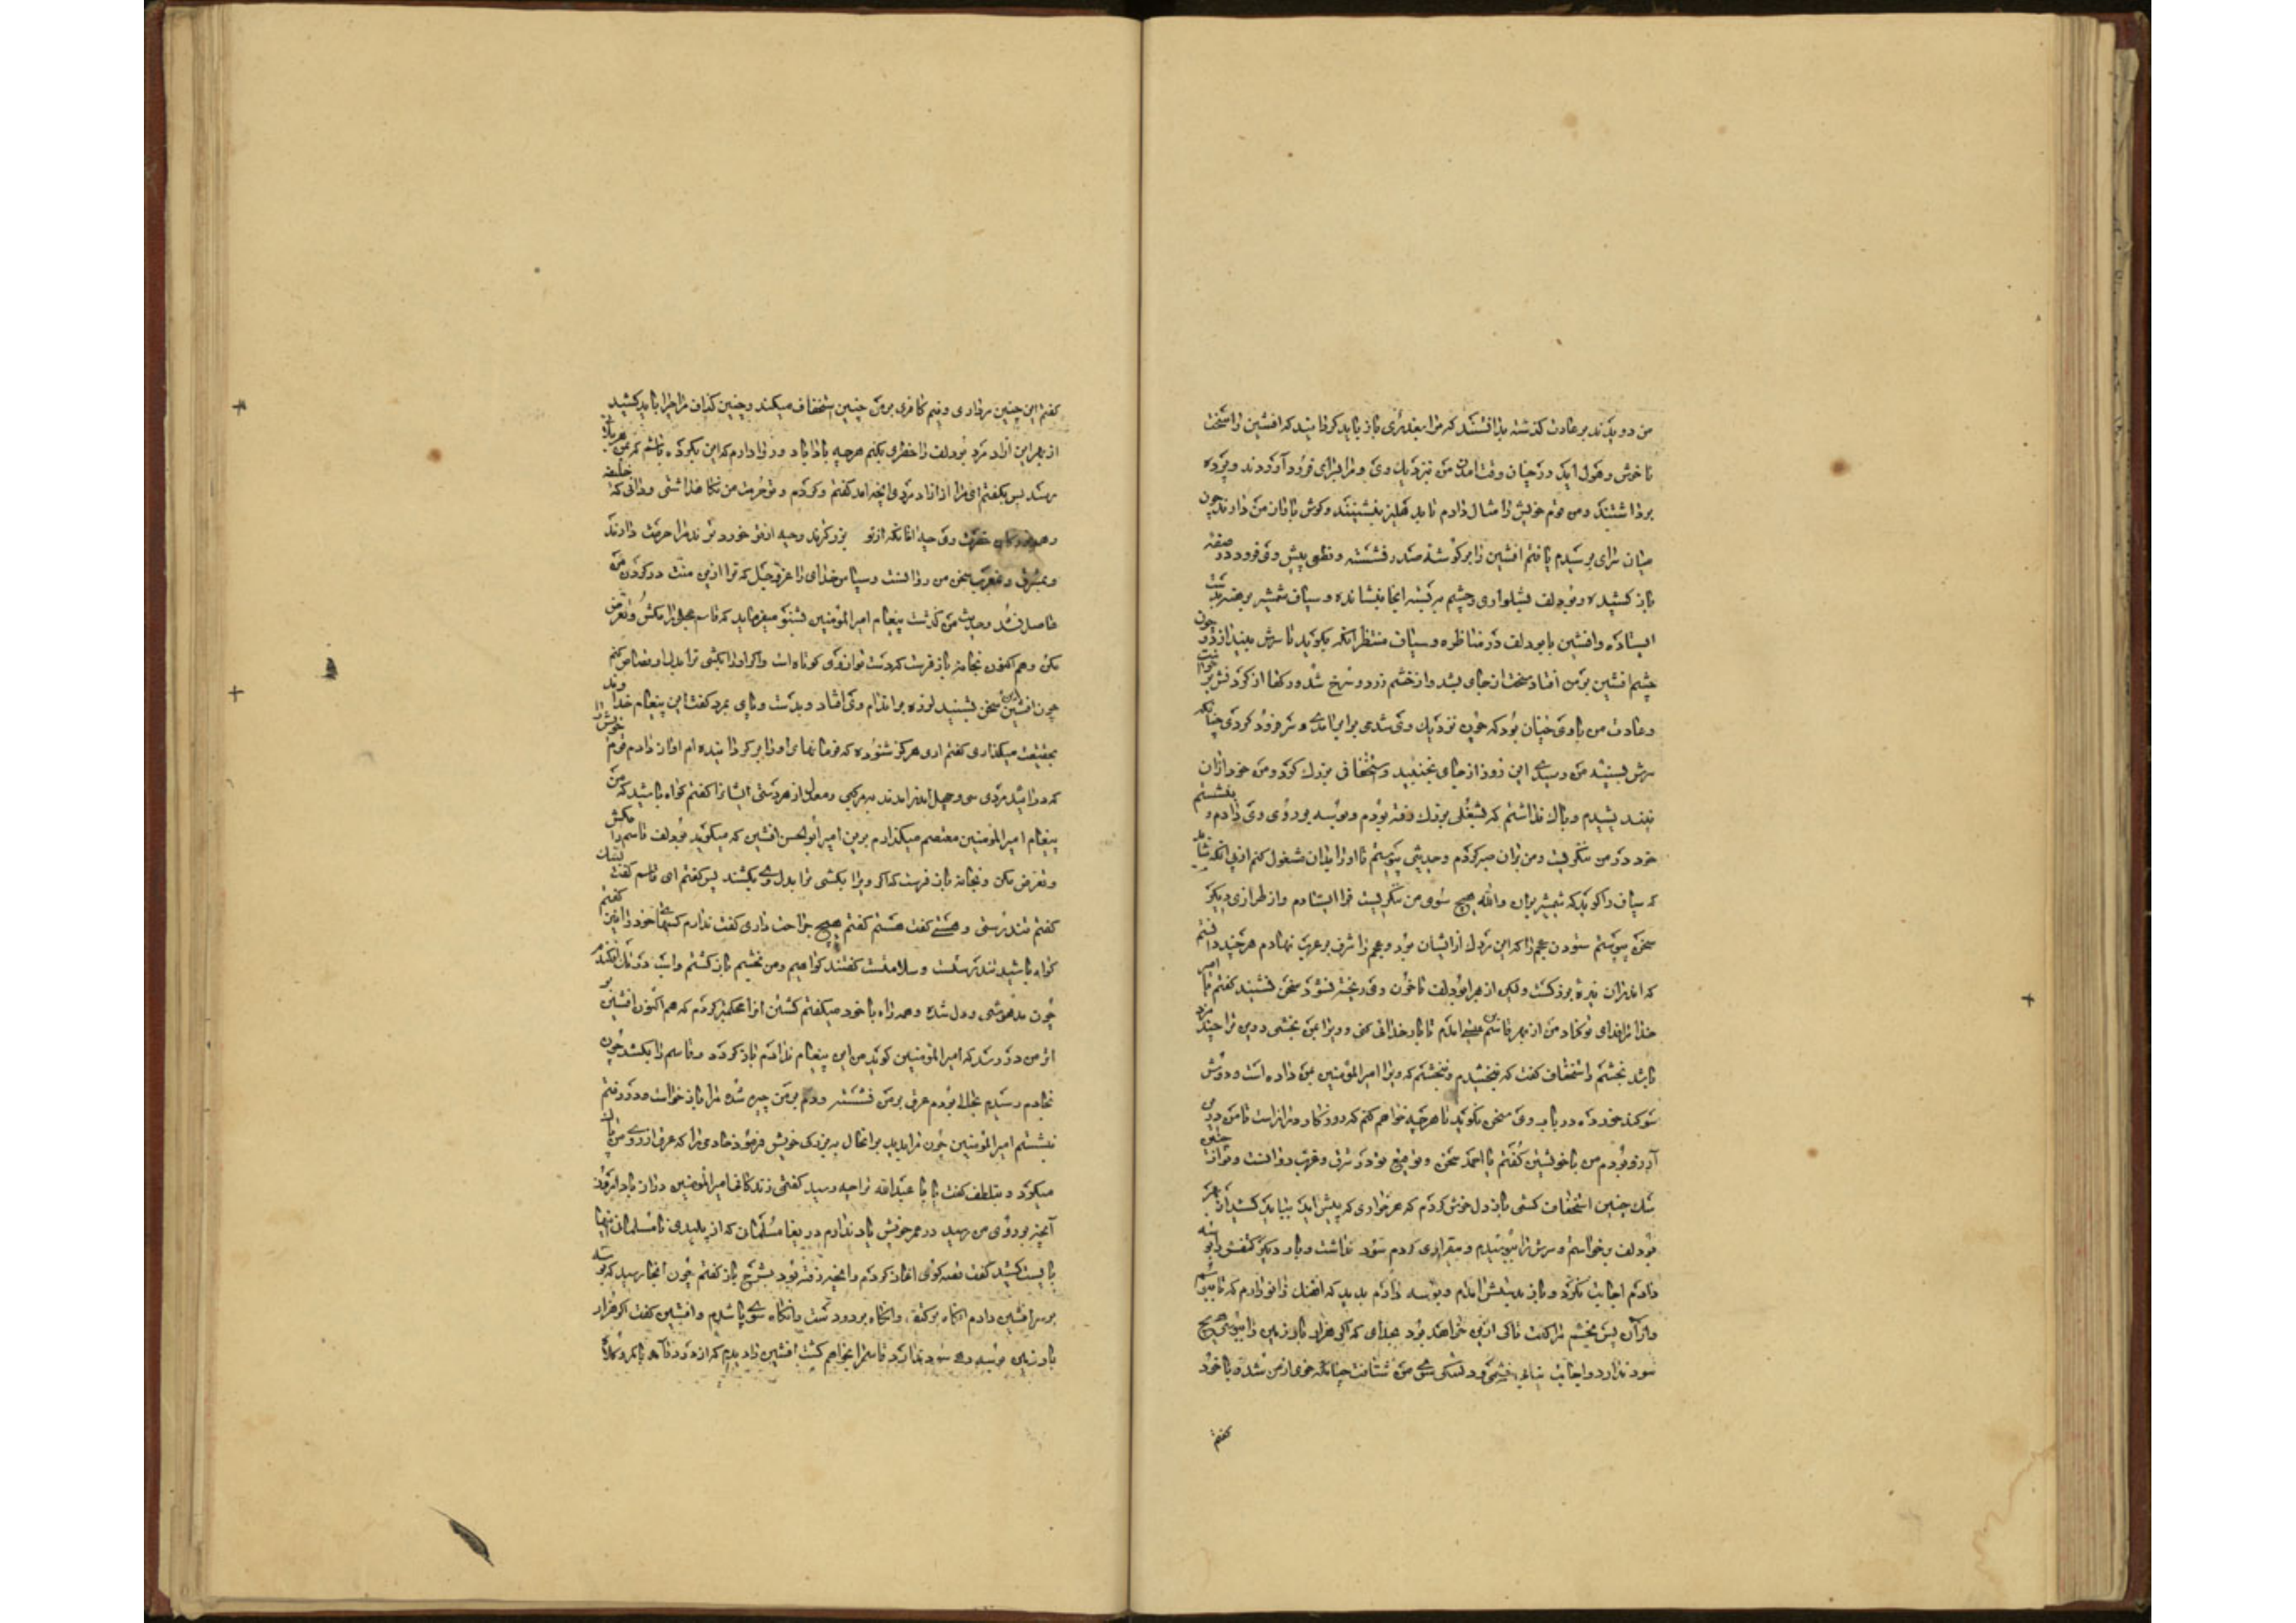 من دویدند بر عادت گذشته نه دانستند که مرا بعذری باز باید گردانید که افشین را سخت
ناخوش و هول آید در چنان وقت آمدن من نزدیک وی و مرا بسرای فرود آوردند و پرده
برداشتند و من قوم خویش را مثال دادم تا بدهلیز بنشینند و گوش باواز من دارند چون
میان سرای برسیدم یافتم افشین را بر گوشه صدر نشسته و نطعی پیش وی فرود صفه
باز کشیده و بودلف بشلواری و چشم ببسته آنجا بنشانده و سیاف شمشیر برهنه بدست
ایستاده و افشین با بودلف در مناظره و سیاف منتظر آنکه بگوید تا سرش بیندازد و چون
چشم افشین بر من افتاد سخت از جای بشد و از خشم زرد و سرخ شد و رگها از گردنش برخواست
و عادت من با وی چنان بود که چون نزدیک وی شدمی برابر آمدی و سر فرود کردی چنانکه
سرش بسینه من رسیدی این روز از جای نجنبید و استخفافی بزرگ کرد و من خود از آن
نیندیشیدم و باک نداشتم که بشغلی بزرگ رفته بودم و بوسه بر روی وی دادم و بنشستم
خود در من ننگریست و من بر آن صبر کردم و حدیثی پیوستم تا او را بدان مشغول کنم از پی آنکه نباید
که سیاف را گوید که شمشیر بران والله هیچ سوی من ننگریست فرا ایستادم و از طرزی دیگر
سخن پیوستم ستودن عجم را که این مردک از ایشان بود و عجم را شرف بر عرب نهادم هر چند دانستم
که اندر آن بزه بزرگست ولیکن از بهر بودلف تا خون وی ریخته نشود سخن نشنید گفتم یا امیر
خدا مرا فدای تو کناد من از بهر قاسم عیسی آمدم تا بار خدائی کنی و ویرا بمن بخشی درین ترا چند مزد
باشد بخشم و استخفاف گفت که نبخشیدم و نبخشم که ویرا امیر المؤمنین بمن داده است و دوش
سوگند خورده در باب وی سخن نگوید تا هر چه خواهم کنم که روزگار دراز است تا من درین
آرزو بودم من با خویشتن گفتم یا احمد سخن و توقیع تو در شرق و غرب روانست و تو از
سگ چنین استخفاف کشی باز دل خوش کردم که هر خواری که پیش آید بباید کشید از بهر
بودلف برخواستم و سرش را ببوسیدم و بیقراری کردم سود نداشت و بار دیگر کتفش بوسه
دادم اجابت نکرد و باز بدستش آمدم و بوسه دادم بدید که آهنگ زانو دارم که تا ببوسم
و از آن پس بخشم مرا گفت تا کی ازین خواهد بود بخدای که اگر هزار بار زمین را ببوسی هیچ
سود ندارد و اجابت نیابی خشمی و دلتنگی سوی من شتافت چنانکه خوی از من شده با خود
گفتم
گفتم این چنین مرداری و نیم کافری بر من چنین استخفاف میکند و چنین گزاف مرا چرا باید کشید
از بهر این آزاد مرد بودلف را خطری بکنم هر چه باداباد و روا دارم که این بکرده باشم که بمن هر بلائی
رسد پس بگفتم ای امیر مرا از آزاد مردی آنچه آمد گفتم و کردم و تو حرمت من نگاه نداشتی و دانی که خلیفه
و همه بزرگان حضرت وی چه آنانکه از تو بزرگترند و چه از تو خوردترند مرا حرمت دارند
و بمشرق و مغرب سخن من روانست و سپاس خدای را عز و جل که ترا ازین منت در گردن من
حاصل نشد و حدیث من گذشت پیغام امیر المؤمنین بشنو میفرماید که قاسم عجلی را مکش و تعرض
مکن و هم اکنون بخانه باز فرست که دست تو از وی کوتاه است و اگر او را بکشی ترا بدل او قصاص کنم
چون افشین این سخن بشنید لرزه بر اندام وی افتاد و بدست و پای بمرد گفت این پیغام خداوند
بحقیقت میگذاری گفتم آری هرگز شنوده که فرمانهای او را برگردانیده ام آواز دادم قوم خویش را
که درآئید مردی سی و چهل اندر آمدند مزکی و معدل از هر دستی ایشانرا گفتم گواه باشید که من
پیغام امیر المؤمنین معتصم میگذارم برین امیر ابو الحسن افشین که میگوید بودلف قاسم را مکش
و تعرض مکن و بخانه باز فرست که اگر ویرا بکشی ترا بدل وی بکشند پس گفتم ای قاسم گفت لبیک
گفتم تندرستی و هستی گفت هستم گفتم هیچ جراحت داری گفت ندارم کسهای خود را نیز گفتم
گواه باشید تندرستست و سلامتست گفتند گواهیم و من بخشم باز گشتم و اسب در تک افکندم
چون مدهوشی و دل شده و همه راه با خود میگفتم کشتن او را محکمتر کردم که هم اکنون افشین بر
اثر من در رسد که امیر المؤمنین گوید من این پیغام ندادم باز گردد و قاسم را بکشد چون
بخادم رسیدم بحالی بودم عرق بر من نشسته و دم بر من چیره شده مرا بار خواست و در رفتم
بنشستم امیر المؤمنین چون مرا بدید بر آنحال ببزرگی خویش فرمود خادمی را که عرق از روی من پاک
میکرد و بتلطف گفت یا با عبدالله ترا چه رسید گفتم زندگانی امیر المؤمنین دراز باد امروز
آنچه بر روی من رسید در عمر خویش یاد ندارم دریغا مسلمانی که از پلیدی نامسلمان اینها
بایست کشید گفت قصه گوی آغاز کردم و آنچه رفته بود بشرح باز گفتم چون آنجا رسید که بوسه
بر سر افشین دادم آنگاه بر کتف و آنگاه بر دو دست و آنگاه سوی پا شدم و افشین گفت اگر هزار
بار زمین بوسه دهی سود ندارد قاسم را بخواهم کشت افشین را دیدم که از در درآمد با کمر و کلاه